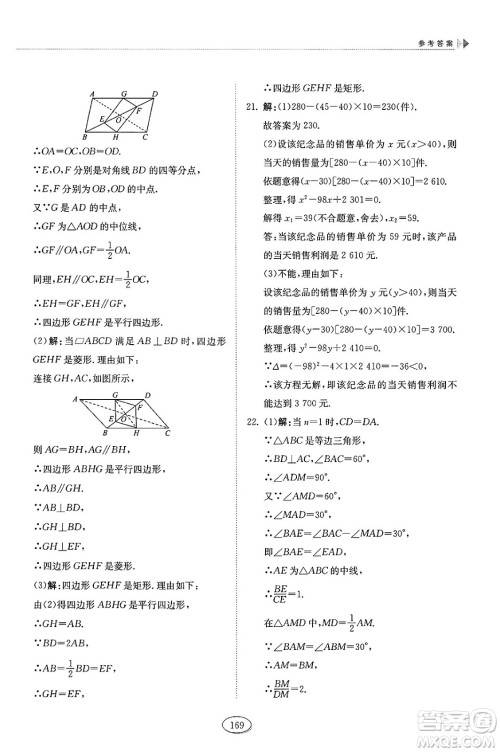 参考答案
A G D
E F O
B H C
∴OA=OC,OB=OD.
∵E、O、F 分别是对角线 BD 的四等分点,
∴E、F 分别为 OB、OD 的中点.
又∵G 是 AD 的中点,
∴GF 为△AOD 的中位线,
∴GF∥OA,GF=1/2OA.
同理,EH∥OC,EH=1/2OC,
∴EH=GF,EH∥GF,
∴四边形 GEHF 是平行四边形.
(2)解:当▱ABCD 满足 AB⊥BD 时,四边形 GEHF 是菱形.理由如下:
连接 GH,如图所示,
A G D
E F
B H C
则 AG=BH,AG∥BH,
∴四边形 ABHG 是平行四边形,
∴AB∥GH.
∵AB⊥BD,
∴GH⊥BD,
∴GH⊥EF,
∴四边形 GEHF 是菱形.
(3)解:四边形 GEHF 是矩形.理由如下:
由(2)得四边形 ABHG 是平行四边形,
∴GH=AB.
∵BD=2AB,
∴AB=1/2BD=EF,
∴GH=EF,
∴四边形 GEHF 是矩形.
21. 解:(1)280-(45-40)×10=230(件).
故答案为 230.
(2)设该纪念品的销售单价为 x 元(x>40),则当天的销售量为[280-(x-40)×10]件.
依题意得(x-30)[280-(x-40)×10]=2 610.
整理,得 x²-98x+2 301=0.
解得 x₁=39(不合题意,舍去),x₂=59.
答:当该纪念品的销售单价为 59 元时,该产品的当天销售利润是 2 610 元.
(3)不能,理由如下:
设该纪念品的销售单价为 y 元(y>40),则当天的销售量为[280-(y-40)×10]件.
依题意得(y-30)[280-(y-40)×10]=3 700.
整理,得 y²-98y+2 410=0.
∵Δ=(-98)²-4×1×2 410=-36<0,
∴该方程无解,即该纪念品的当天销售利润不能达到 3 700 元.
22. (1)解:当 n=1 时,CD=DA.
∵△ABC 是等边三角形,
∴BD⊥AC,∠BAC=60°,
∴∠ADM=90°.
又∵AE⊥BC,
∴∠MAD=1/2∠BAC=30°,
∴∠BAE=∠MAD=30°,
∴AE 为△ABC 的中线,
∴BE/CE=1.
在△ADM 中,DM=1/2AM,
∵∠ABM=∠BAM=30°,
∴AM=BM,
∴BM/DM=2.
169